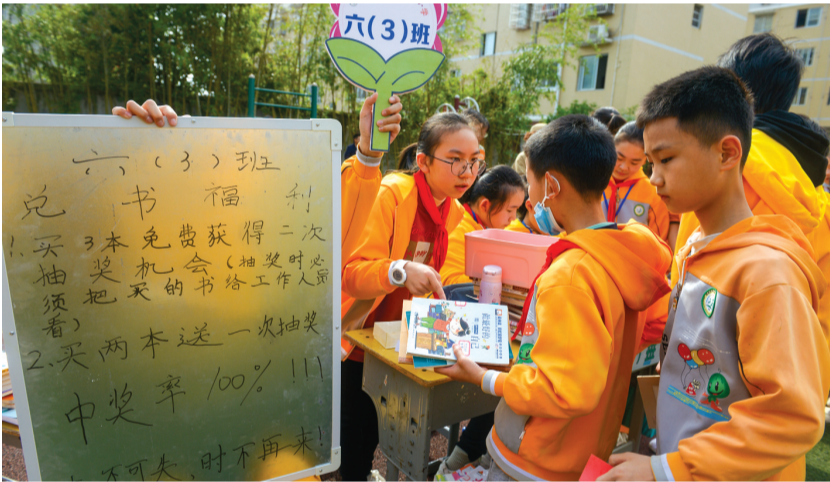 六(3)班
六(3)班
兑书福利
1.买3本免费获得二次
抽奖机会(抽奖时必
须把买的书给工作人员
看)
2.买两本送一次抽奖
中奖率100%!!!
不可失,时不再来!
自己